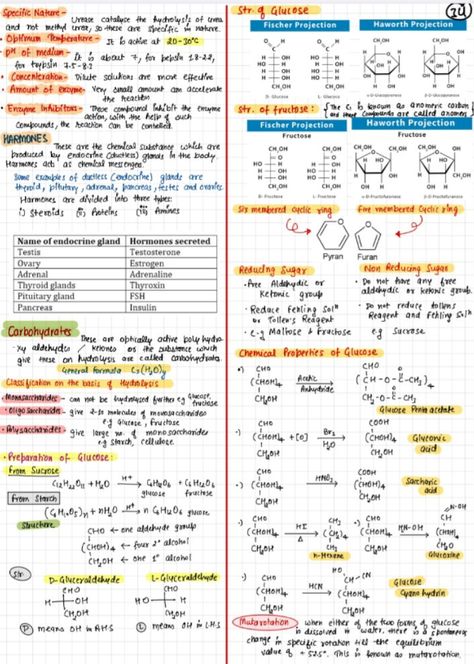 Specific Nature - Urease catalyse the hydrolysis of urea
and not methyl urea, so these are specific in nature.
Optimum Temperature - It is active at 20-30°C
pH of medium - It is about 7, for pepsin 1.8-2.2,
for trypsin 7.5-8.3
Concentration - Dilute solutions are more effective
Amount of enzyme - Very small amount can accelerate
the reaction
Enzyme Inhibitors - These compound inhibit the enzyme
action, with the help of such
compounds, the reaction can be controlled.
HARMONES
These are the chemical substance which are
produced by endocrine (ductless) glands in the body.
Harmones act as chemical messengers.
Some examples of ductless (endocrine) glands are
thyroid, pitutary, adrenal, pancreas, testes and ovaries.
Harmones are divided into three types:
i) Steroids (ii) Proteins (iii) Amines
Name of endocrine gland Hormones secreted
Testis Testosterone
Ovary Estrogen
Adrenal Adrenaline
Thyroid glands Thyroxin
Pituitary gland FSH
Pancreas Insulin
Carbohydrates
These are optically active poly hydro-
xy aldehydes / ketones or the substance which
give these on hydrolysis are called carbohydrate.
General formula Cx(H2O)y
Classification on the basis of Hydrolysis
Monosaccharides - can not be hydrolysed further e.g Glucose,
fructose
Oligosaccharides - give 2-10 molecules of monosaccharides
e.g glucose, fructose
Polysaccharides - give large no. of monosaccharides
e.g starch, cellulose.
Preparation of Glucose:
From Sucrose
C12H22O11 + H2O H+ C6H12O6 + C6H12O6
glucose fructose
From Starch
(C6H10O5)n + nH2O H+ n C6H12O6 glucose
Structure
CHO ← one aldehyde group
(CHOH)4 ← four 2° alcohol
CH2OH ← one 1° alcohol
Str.
D-Gluceraldehyde L-Gluceraldehyde
CHO CHO
H OH HO H
CH2OH CH2OH
D means OH in R.H.S L means OH in L.H.S
24
Str. of Glucose
Fischer Projection Haworth Projection
D-Glucose L-Glucose
Str. of fructose: The C1 is known as anomeric carbon
and these compounds are called anomers
Fischer Projection Haworth Projection
Fructose Fructose
D-Fructose L-Fructose
Six membered cyclic ring Five membered cyclic ring
Pyran Furan
Reducing Sugar Non Reducing Sugar
Free Aldehydic or
Ketonic group
Do not have any free
aldehydic or ketonic group.
Reduce Fehling Solⁿ
or Tollen's Reagent
Do not reduce tollens
Reagent and Fehling Solⁿ
e.g Maltose & Fructose
e.g Sucrose
Chemical Properties of Glucose
CHO
(CHOH)4 Acetic Anhydride
CH2OH
Glucose Penta acetate
CHO COOH
(CHOH)4 + [O] Br2 H2O (CHOH)4 Gluconic
CH2OH CH2OH acid
CHO COOH
(CHOH)4 (CHOH)4 Saccharic
CH2OH COOH acid
CHO CH3
(CHOH)4 HI Δ (CH2)4
CH2OH CH3
n-Hexene
CHO
(CHOH)4
CH2OH
Glucoxime
CHO
(CHOH)4 HCN (CHOH)4 Glucose
CH2OH CH2OH Cyanohydrin
Mutarotation when either of the two forms of glucose
is dissolved in water, there is a spontaneous
change in specific rotation till the equilibrium
value of + 52.5°. This is known as mutarotation.